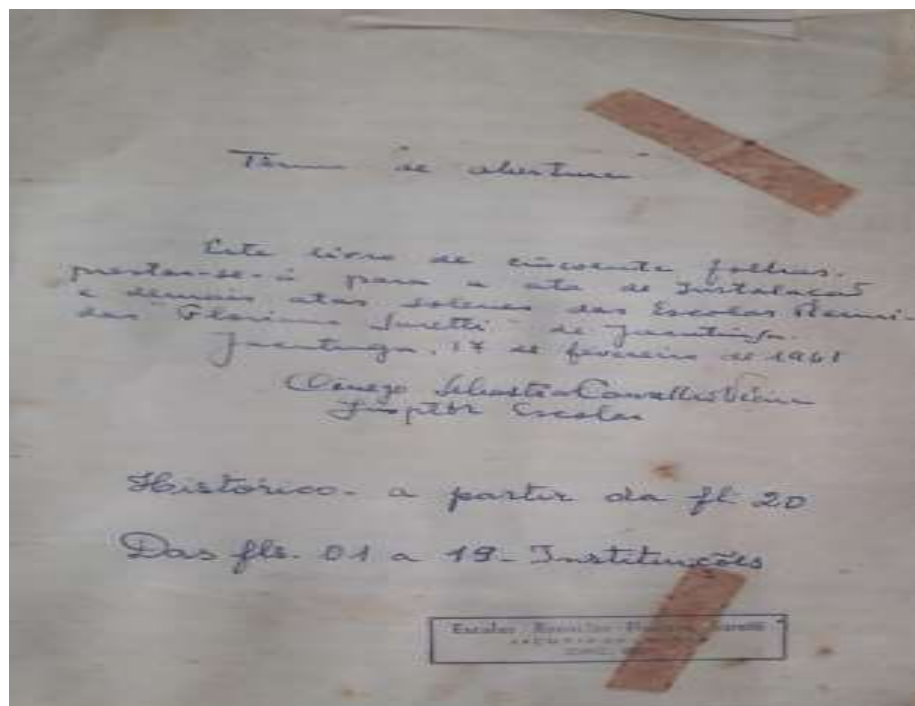 Termo de abertura
Este livro de cincoenta folhas.
prestar-se-á para a ata de Instalação
e demais atas solenes das Escolas Reuni-
das "Florismo Suretti" de Jacutinga.
Jacutinga, 17 de fevereiro de 1961
Conego Sebastião Carvalho Vieira
Inspetôr Escolar
Histórico - a partir da fl 20
Das fls. 01 a 19 - Instituições
Escolas Reunidas